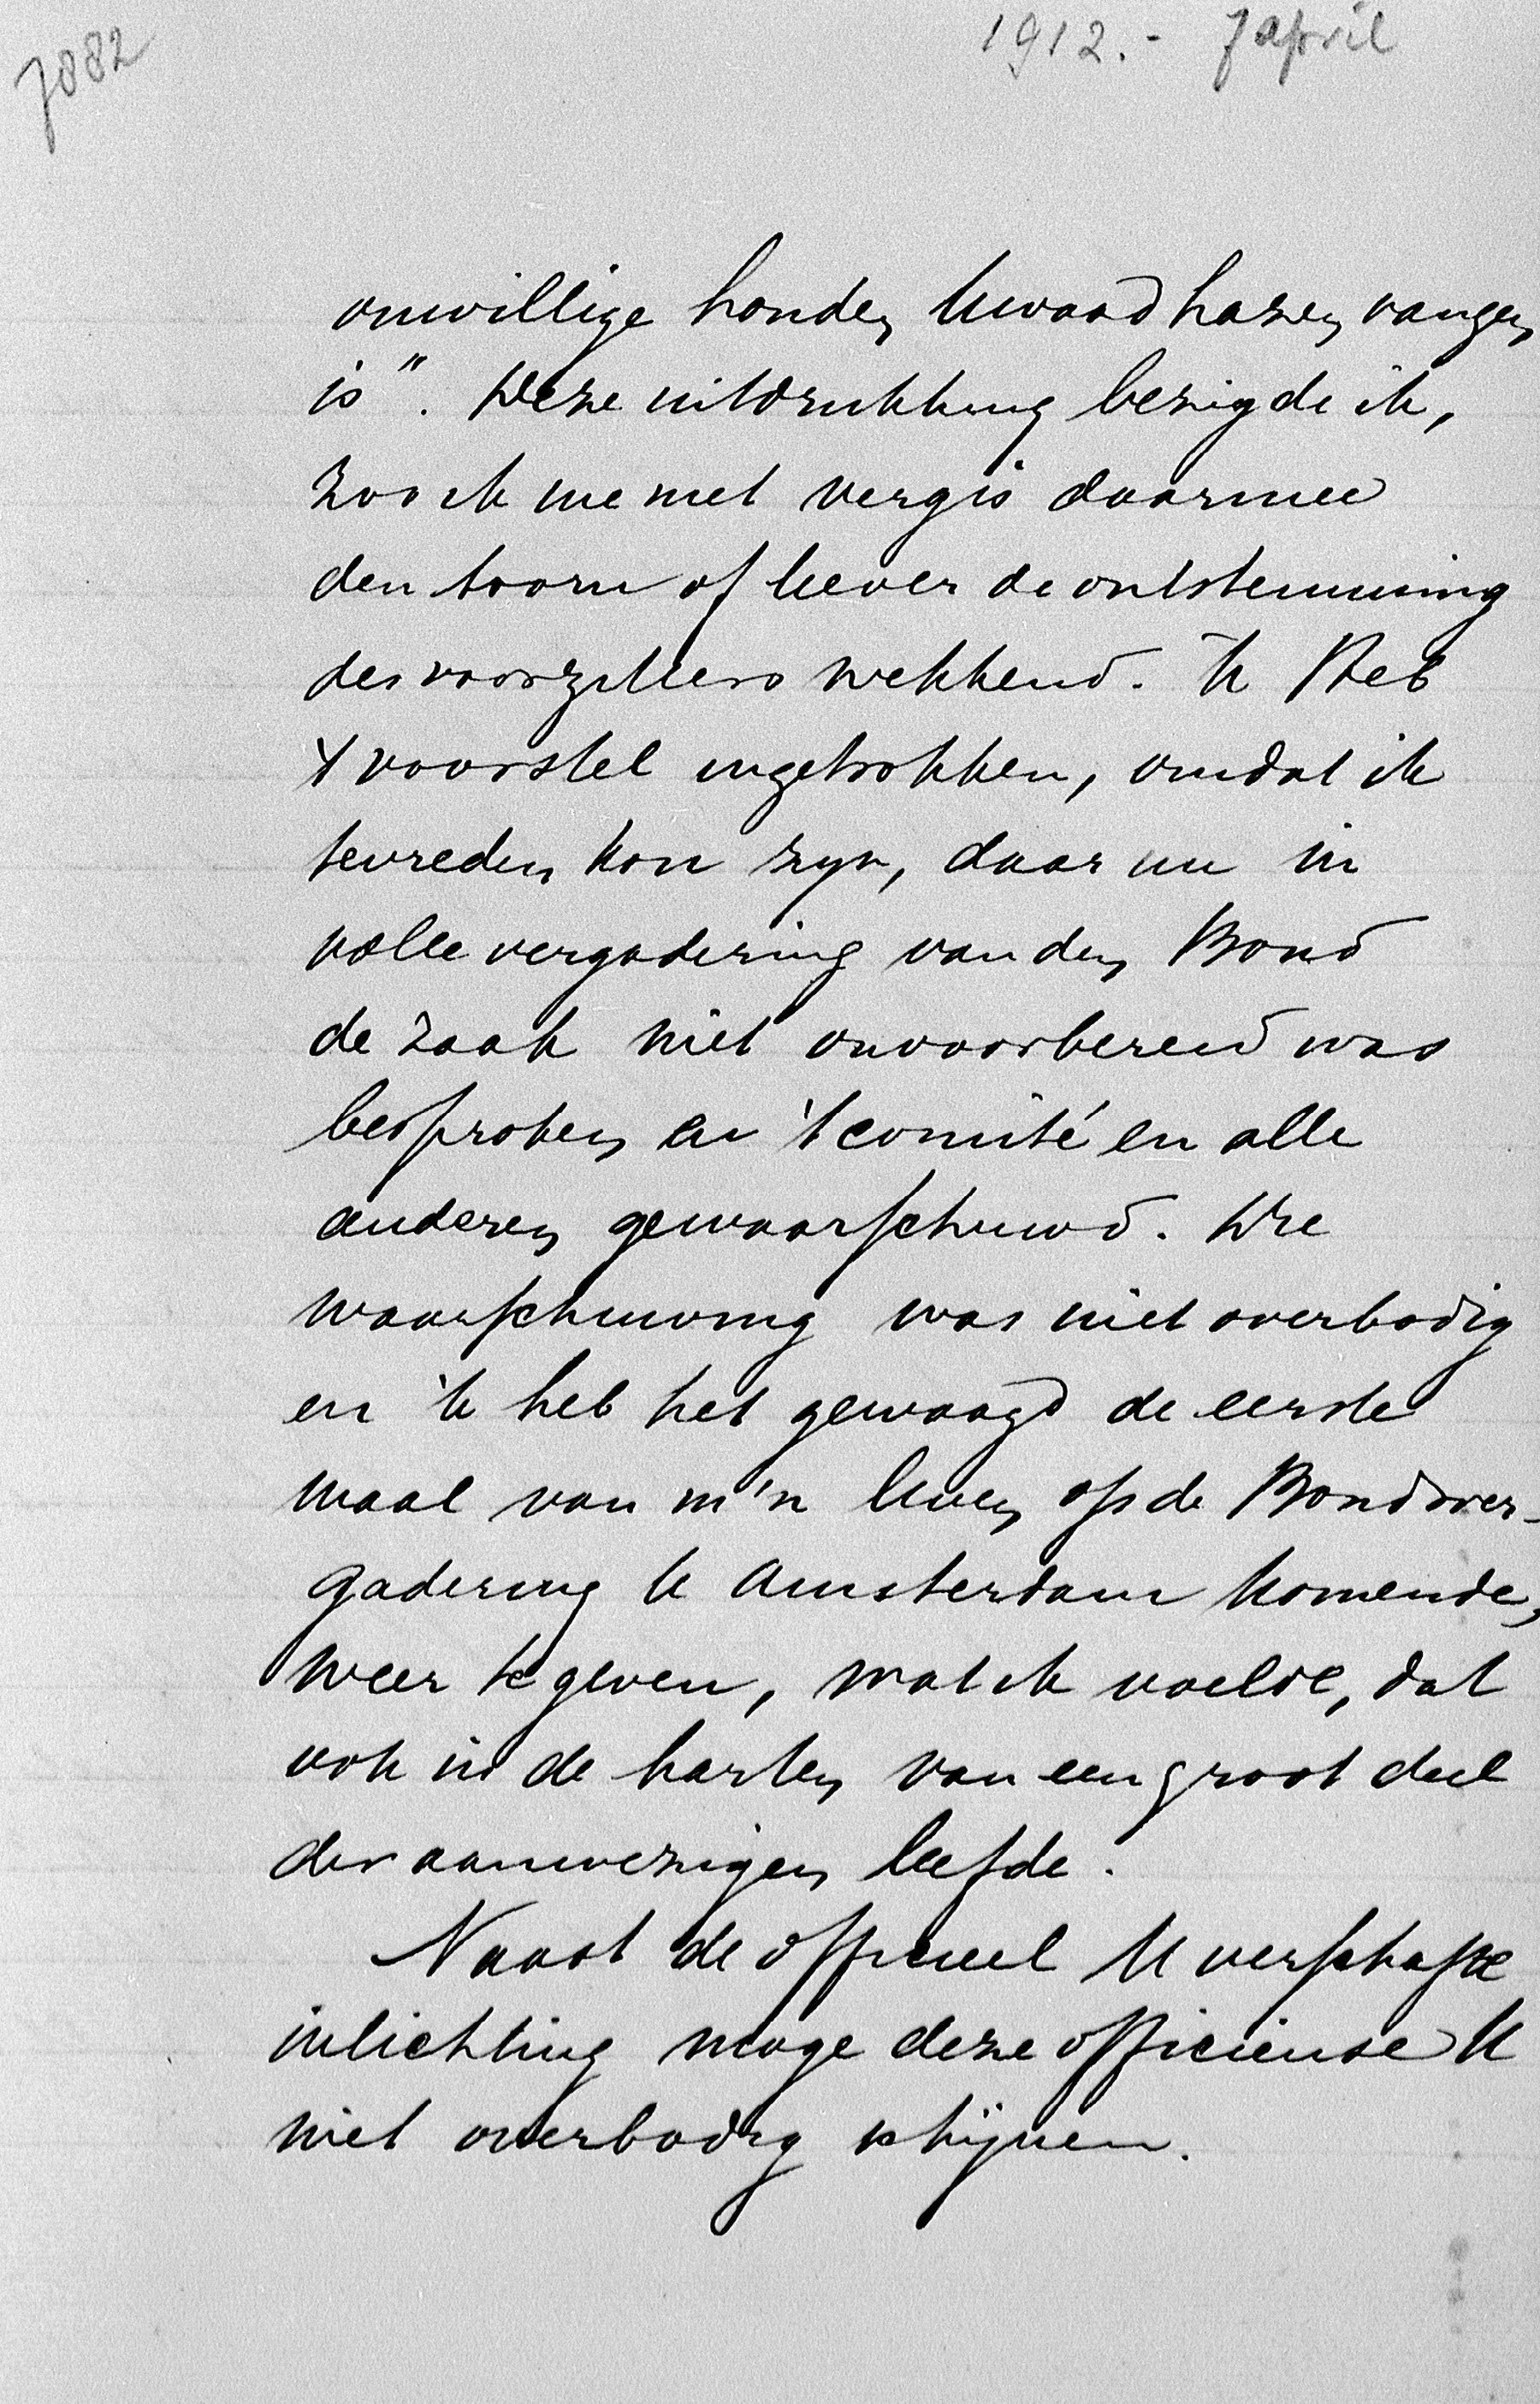 7082
1912.- 7 april
onwillige honden kwaad hazen vangen
is". Deze uitdrukking bezigde ik,
zoo ik me niet vergis daarmee
den toorn of liever de ontstemming
des voorzitters wekkend. Ik heb
't voorstel ingetrokken, omdat ik
tevreden kon zijn, daar nu in
volle vergadering van den Bond
de zaak niet onvoorbereid was
besproken en 't comité en alle
anderen gewaarschuwd. Die
waarschuwing was niet overbodig
en 'k heb het gewaagd de eerste
maal van m'n leven op de Bondsver-
gadering te Amsterdam komende,
weer te geven, wat ik voelde, dat
ook in de harten van een groot deel
der aanwezigen leefde.
Naast de officieel U verschafte
inlichting moge deze officieuse U
niet overbodig schijnen.